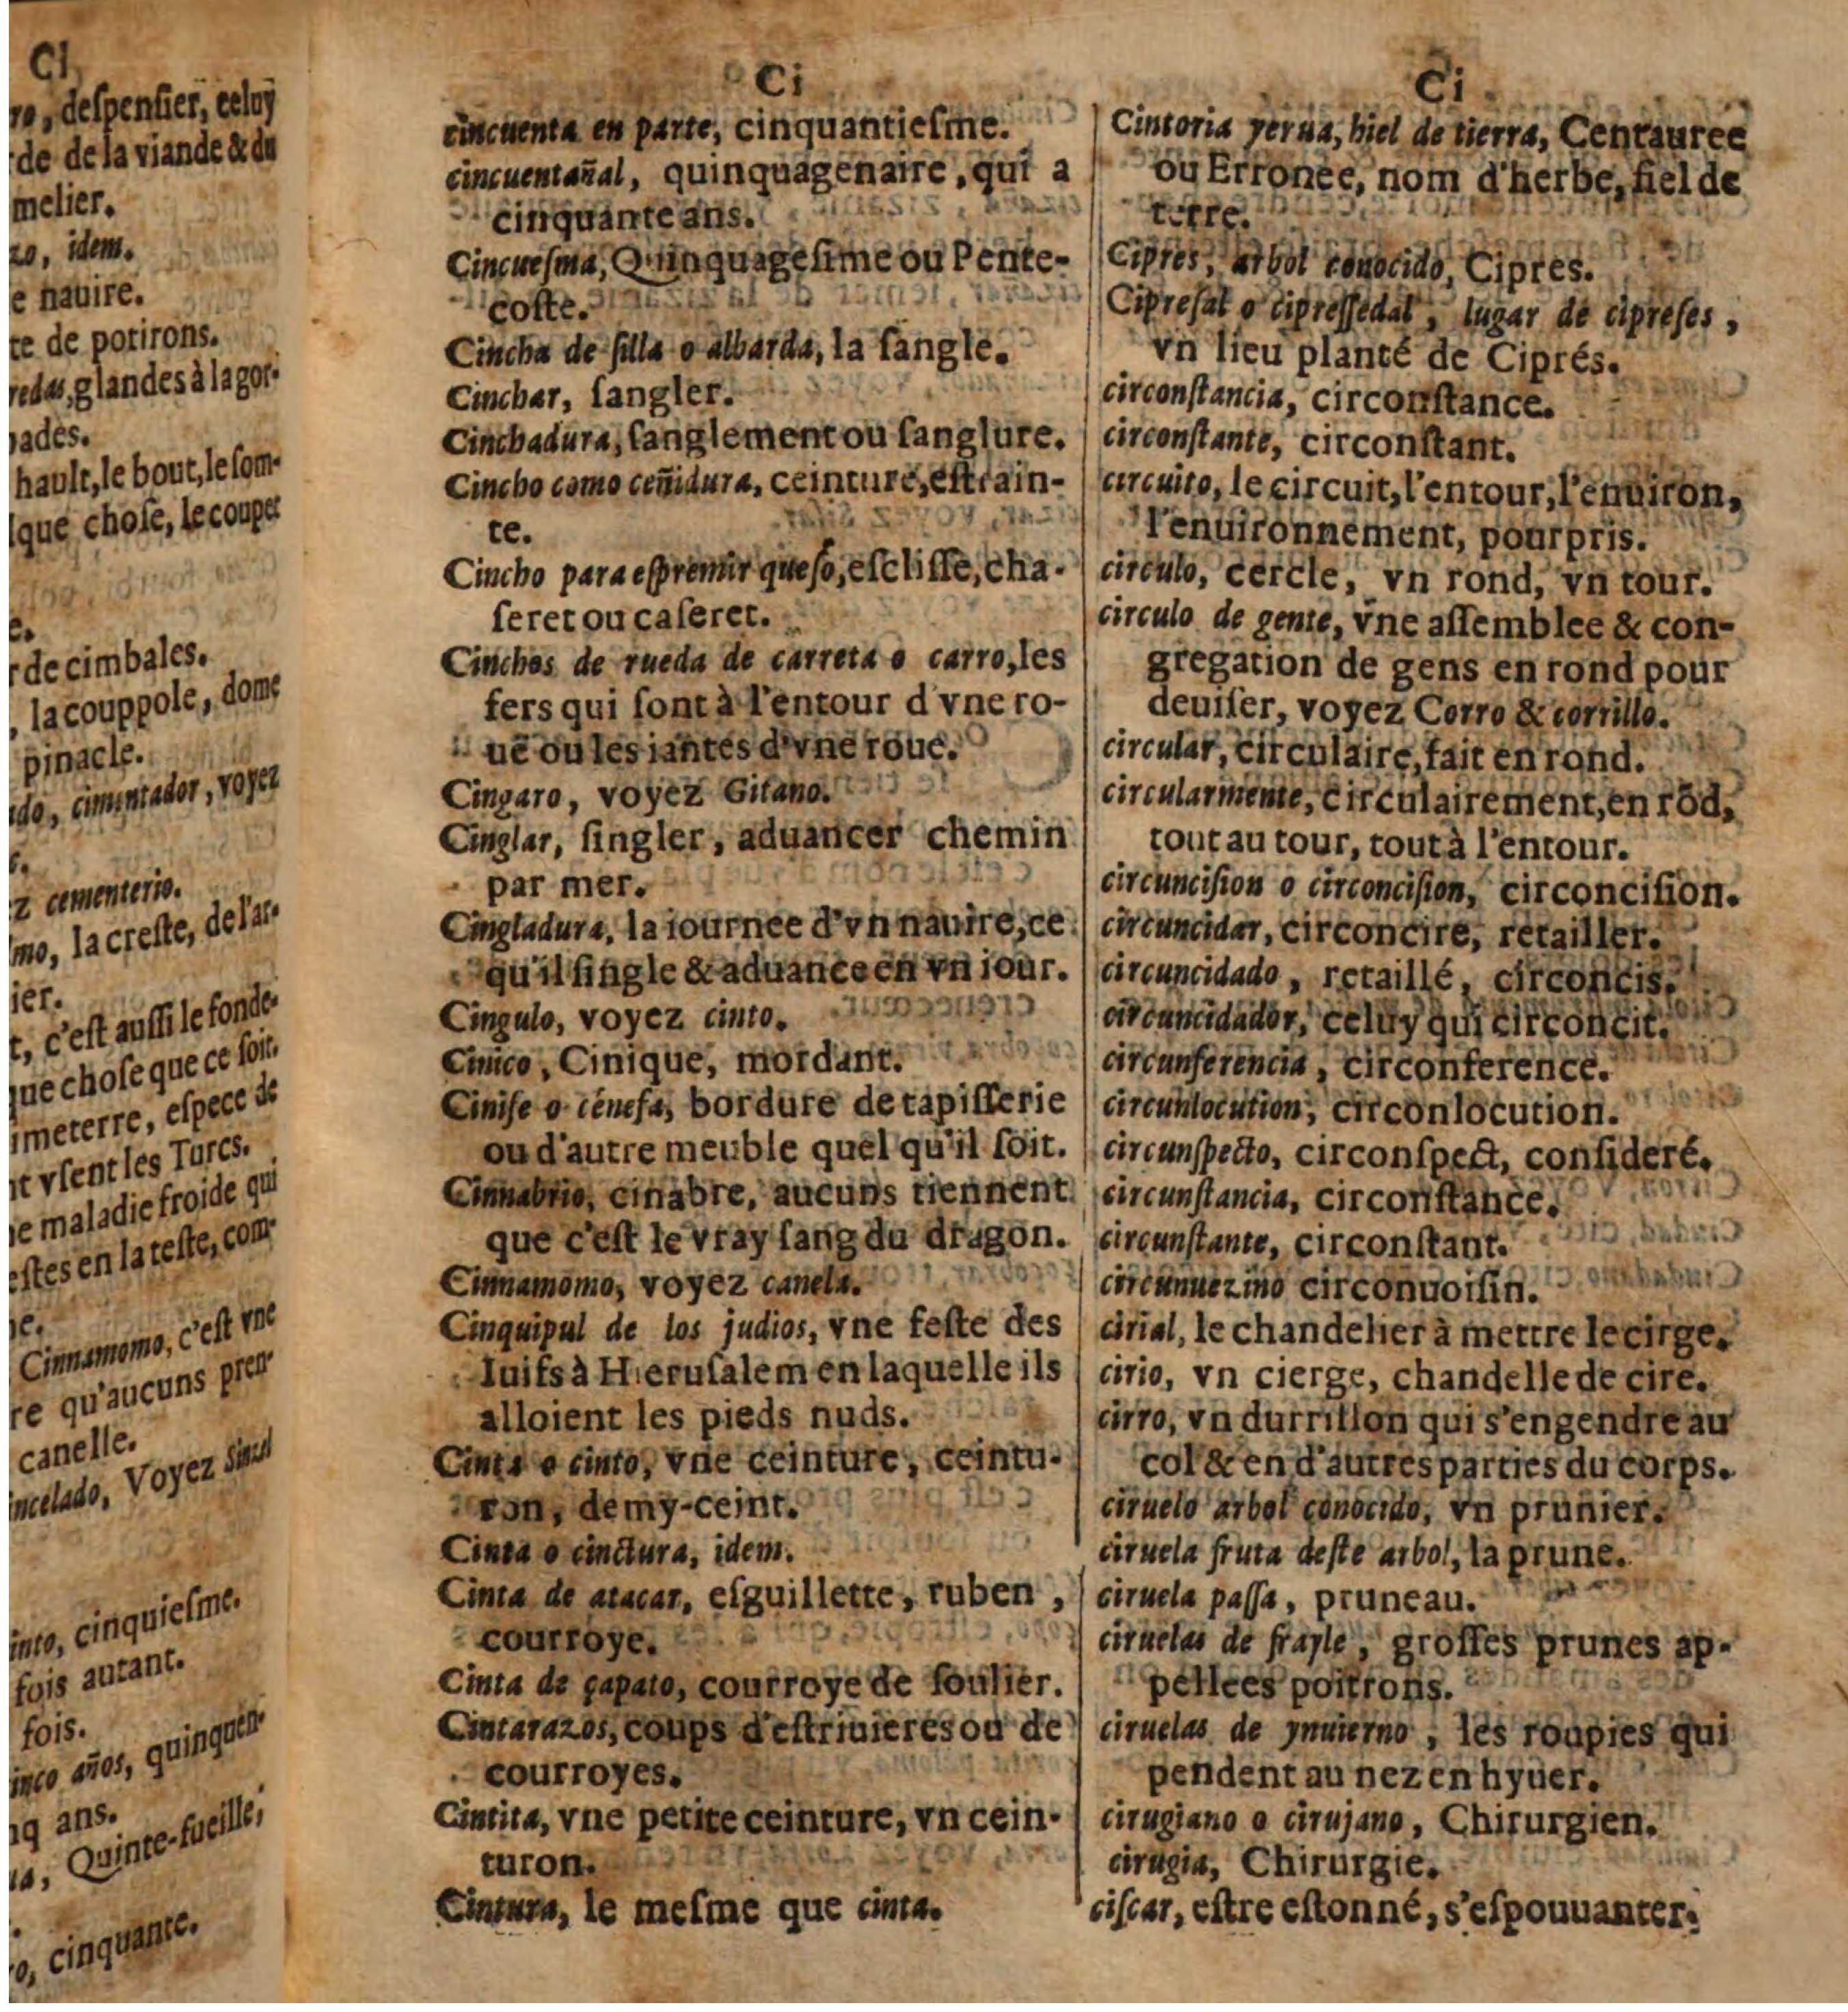 Ci
, despensier, celuy
de de la viande & du
melier.
idem.
e nauire.
te de potirons.
glandes à la gor-
hault, le bout, le som-
que chose, le coupet
de cimbales.
la couppole, dome
pinacle.
cimentador, voyez
cementerio.
la creste, de l'ar-
ier.
t, c'est aussi le fonde-
que chose que ce soit.
imeterre, espece de
t vsent les Turcs.
e maladie froide qui
estes en la teste, com-
Cinnamomo, c'est vne
re qu'aucuns pren-
canelle.
Voyez
cinquiesme.
fois autant.
fois.
años, quinquen-
ans.
Quinte-fueille,
cinquante.
Ci
cincuenta en parte, cinquantiesme.
cincuentañal, quinquagenaire, qui a
cinquante ans.
Cincuesma, Quinquagesime ou Pente-
coste.
Cincha de silla o albarda, la sangle.
Cinchar, sangler.
Cinchadura, sanglement ou sanglure.
Cincho como ceñidura, ceinture, estrain-
te.
Cincho para espremir queso, esclisse, cha-
seret ou caseret.
Cinchos de rueda de carreta o carro, les
fers qui sont à l'entour d'vne ro-
uë ou les iantes d'vne roue.
Cingaro, voyez Gitano.
Cinglar, singler, aduancer chemin
par mer.
Cingladura, la iournee d'vn nauire, ce
qu'il single & aduance en vn iour.
Cingulo, voyez cinto.
Cinico, Cinique, mordant.
Cinife o cénefa, bordure de tapisserie
ou d'autre meuble quel qu'il soit.
Cinnabrio, cinabre, aucuns tiennent
que c'est le vray sang du dragon.
Cinnamomo, voyez canela.
Cinquipul de los judios, vne feste des
Iuifs à Hierusalem en laquelle ils
alloient les pieds nuds.
Cinta o cinto, vne ceinture, ceintu-
ron, demy-ceint.
Cinta o cinctura, idem.
Cinta de atacar, esguillette, ruben,
courroye.
Cinta de çapato, courroye de soulier.
Cintarazos, coups d'estriuieres ou de
courroyes.
Cintita, vne petite ceinture, vn cein-
turon.
Cintura, le mesme que cinta.
Ci
Cintoria yerua, hiel de tierra, Centauree
ou Erronee, nom d'herbe, fiel de
terre.
Cipres, arbol conocido, Cipres.
Cipresal o cipressedal, lugar de cipreses,
vn lieu planté de Ciprés.
circonstancia, circonstance.
circonstante, circonstant.
circuito, le circuit, l'entour, l'enuiron,
l'enuironnement, pourpris.
circulo, cercle, vn rond, vn tour.
circulo de gente, vne assemblee & con-
gregation de gens en rond pour
deuiser, voyez Corro & corrillo.
circular, circulaire, fait en rond.
circularmente, circulairement, en rōd,
tout au tour, tout à l'entour.
circuncision o circoncision, circoncision.
circuncidar, circoncire, retailler.
circuncidado, retaillé, circoncis.
circuncidador, celuy qui circoncit.
circunferencia, circonference.
circunlocution, circonlocution.
circunspecto, circonspect, consideré.
circunstancia, circonstance.
circunstante, circonstant.
circunuezino circonuoisin.
cirial, le chandelier à mettre le cirge.
cirio, vn cierge, chandelle de cire.
cirro, vn durrillon qui s'engendre au
col & en d'autres parties du corps.
ciruelo arbol conocido, vn prunier.
ciruela fruta deste arbol, la prune.
ciruela passa, pruneau.
ciruelas de frayle, grosses prunes ap-
pellees poitrons.
ciruelas de ynuierno, les roupies qui
pendent au nez en hyuer.
cirugiano o cirujano, Chirurgien.
cirugia, Chirurgie.
ciscar, estre estonné, s'espouuanter.